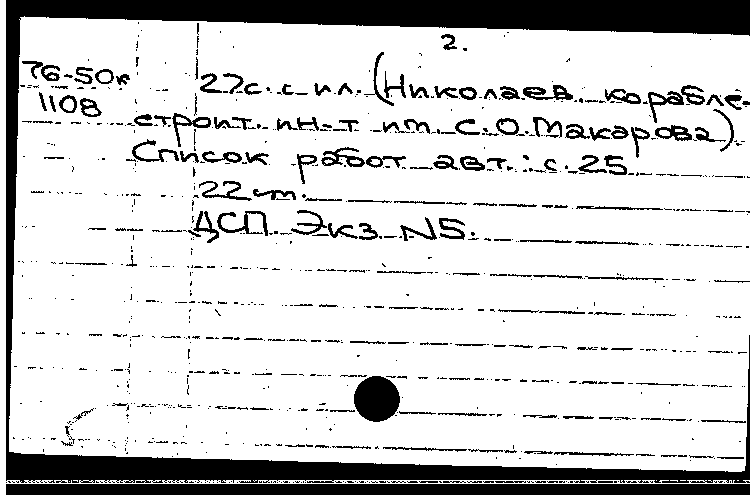 2.
76-50к 27с. с ил. (Николаев. корабле-
1108 строит. ин-т им. С.О.Макарова).
Список работ авт.: с.25
22 см.
ДСП. Экз N5.